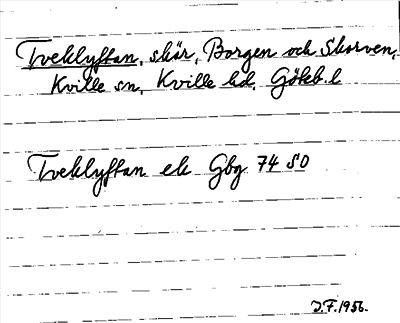 Tveklyftan, skär, Borgen och Skorven,
Kville sn, Kville hd, Göteb. l
Tveklyftan ek Gbg 74 SO
J.F. 1956.